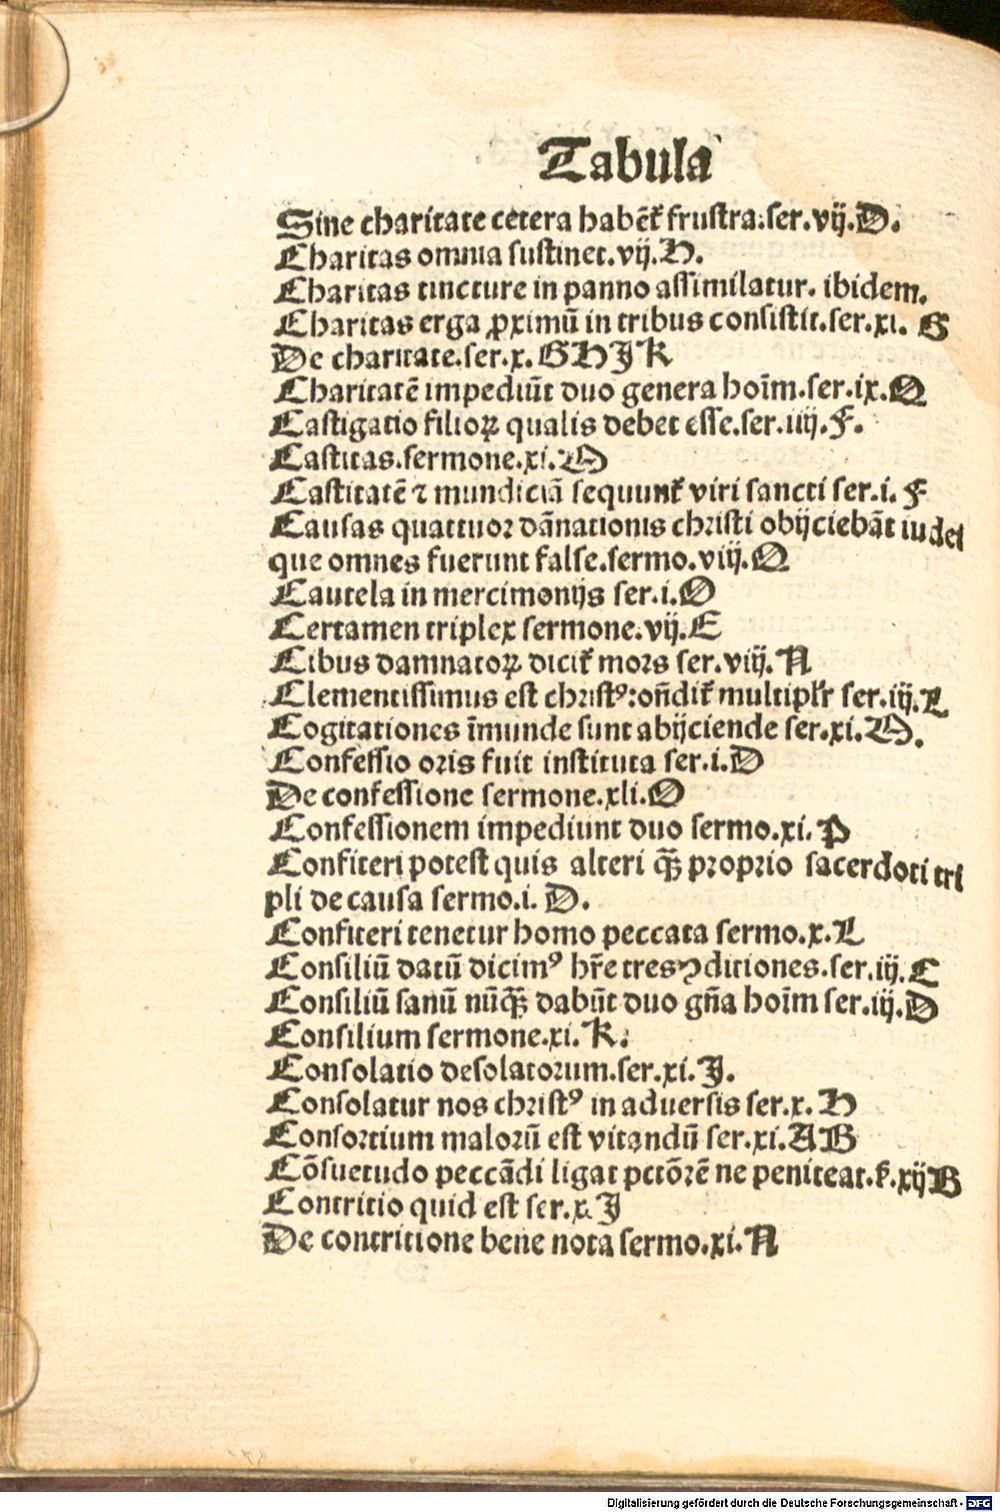 Tabula
Sine charitate cetera habēt᷑ frustra.ser.vij.D.
Charitas omnia sustinet.vij.H.
Charitas tincture in panno assimilatur. ibidem.
Charitas erga ꝓximū in tribus consistit.ser.xi. G
De charitate.ser.x.GHJK
Charitatē impediūt duo genera hoīm.ser.ix.Q
Castigatio filioꝝ qualis debet esse.ser.iiij.F.
Castitas.sermone.xi.M
Castitatē ⁊ mundiciā sequunt᷑ viri sancti ser.i. F
Causas quattuor dānationis christi obijciebāt iudei
que omnes fuerunt false.sermo.viij.Q
Cautela in mercimonijs ser.i.O
Certamen triplex sermone.vij.E
Cibus damnatoꝝ dicit᷑ mors ser.viij.N
Clementissimus est christꝰ:oñdit᷑ multipl’r ser.iij.L
Cogitationes īmunde sunt abijciende ser.xi.M.
Confessio oris fuit instituta ser.i.D
De confessione sermone.xli.O
Confessionem impediunt duo sermo.xi.P
Confiteri potest quis alteri q̄ꝫ proprio sacerdoti tri
pli de causa sermo.i. D.
Confiteri tenetur homo peccata sermo.x.L
Consiliū datū dicimꝰ hr̄e tres ꝯditiones.ser.iij.C
Consiliū sanū nūq̄ꝫ dabūt duo gn̄a hoīm ser.iij.D
Consilium sermone.xi.K.
Consolatio desolatorum.ser.xi.J.
Consolatur nos christꝰ in aduersis ser.x.H
Consortium malorū est vitandū ser.xi.AB
Cōsuetudo peccādi ligat pctōrē ne peniteat.ẜ.xijB
Contritio quid est ser.x.J
De contritione bene nota sermo.xi.N
Digitalisierung gefördert durch die Deutsche Forschungsgemeinschaft - DFG